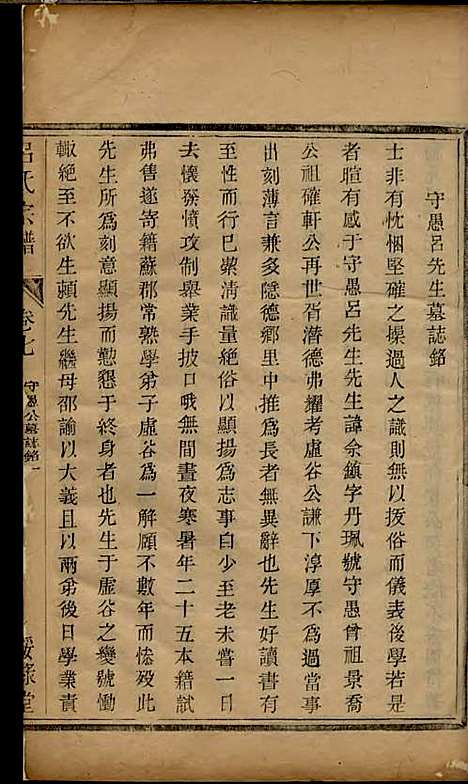 守愚呂先生墓誌銘
士非有忱悃堅確之操過人之識則無以拔俗而儀表後學若是
者暄有感于守愚呂先生先生諱佘鎮字丹珮號守愚曾祖景喬
公祖確軒公再世皆潛德弗耀考虛谷公謙下淳厚不為過當事
出刻薄言兼多隱德鄉里中推為長者無異辭也先生好讀書有
至性而行已縈清識量絕俗以顯揚為志事自少至老未嘗一日
去懷發憤攻制舉業手披口哦無間晝夜寒暑年二十五本籍試
弗售遂寄籍蘇郡常熟學弟子虛谷為一解願不數年而慘歿
先生所為刻意顯揚而懃懇于終身者也先生于虛谷之變號慟
輙絕至不欲生頼先生繼母邵諭以大義且以兩弟後日學業責
呂氏宗譜
卷七
守愚公墓誌銘
一